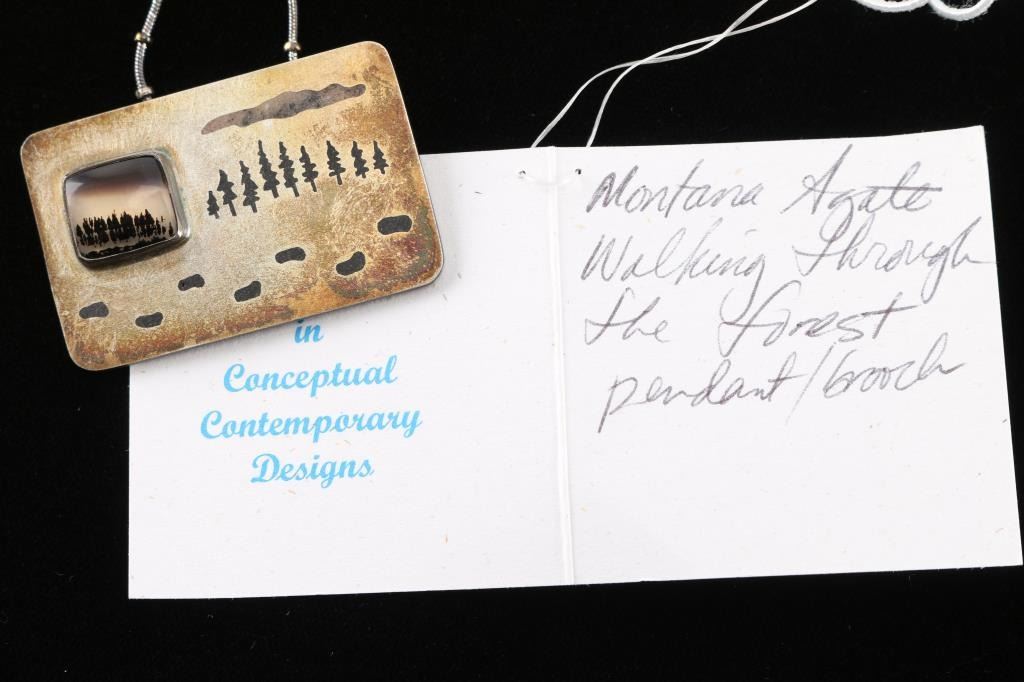 in
Conceptual
Contemporary
Designs
Montana Agate
Walking Through
the forest
pendant/brooch